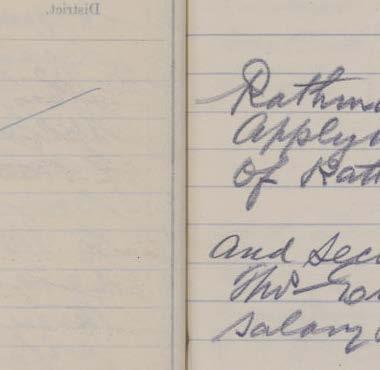 District.
Rathm
Apply
Of Rath
And Sec
Thos
Salary